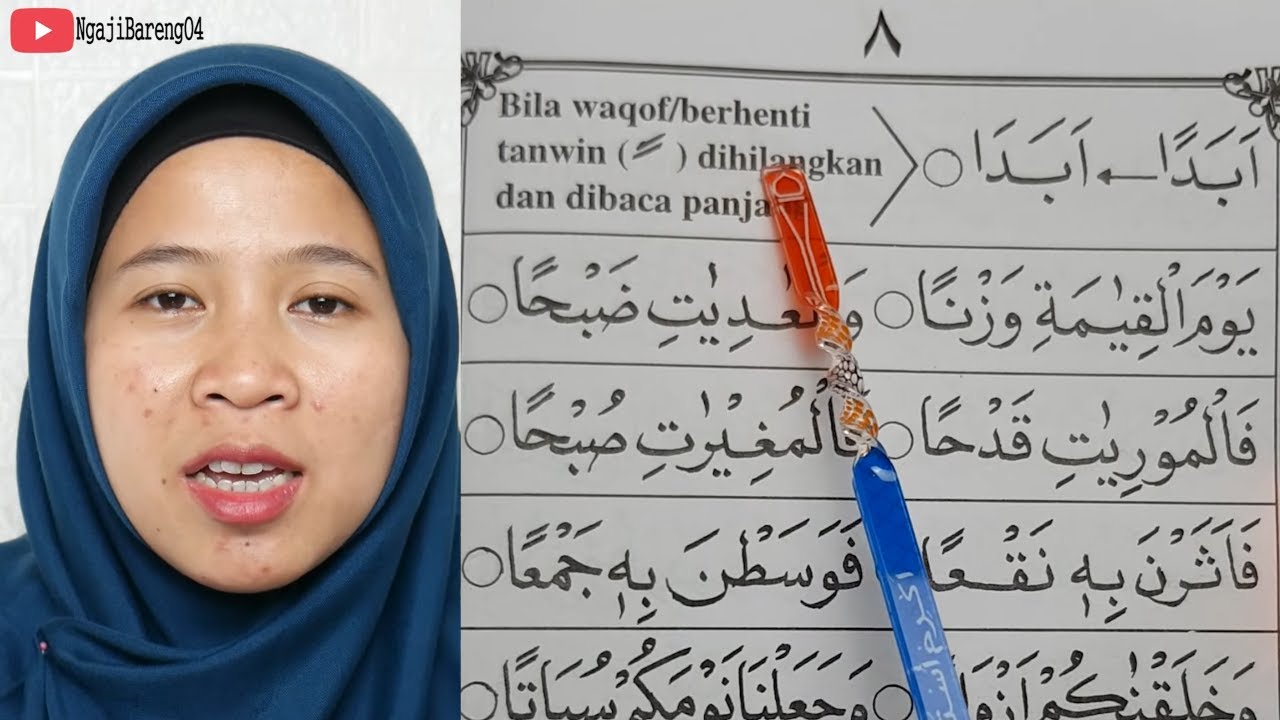 NgajiBareng04
٨
Bila waqof/berhenti
tanwin ( ـً ) dihilangkan
dan dibaca
اَبَدًا ← اَبَدَا
يَوْمَ الْقِيٰمَةِ وَزْنًا
ضَبْحًا
فَالْمُوْرِيٰتِ قَدْحًا
فَالْمُغِيْرٰتِ صُبْحًا
فَاَثَرْنَ بِهٖ نَقْعًا
فَوَسَطْنَ بِهٖ جَمْعًا
وَخَلَقْنٰكُمْ
وَجَعَلْنَا نَوْمَكُمْ سُبَاتًا